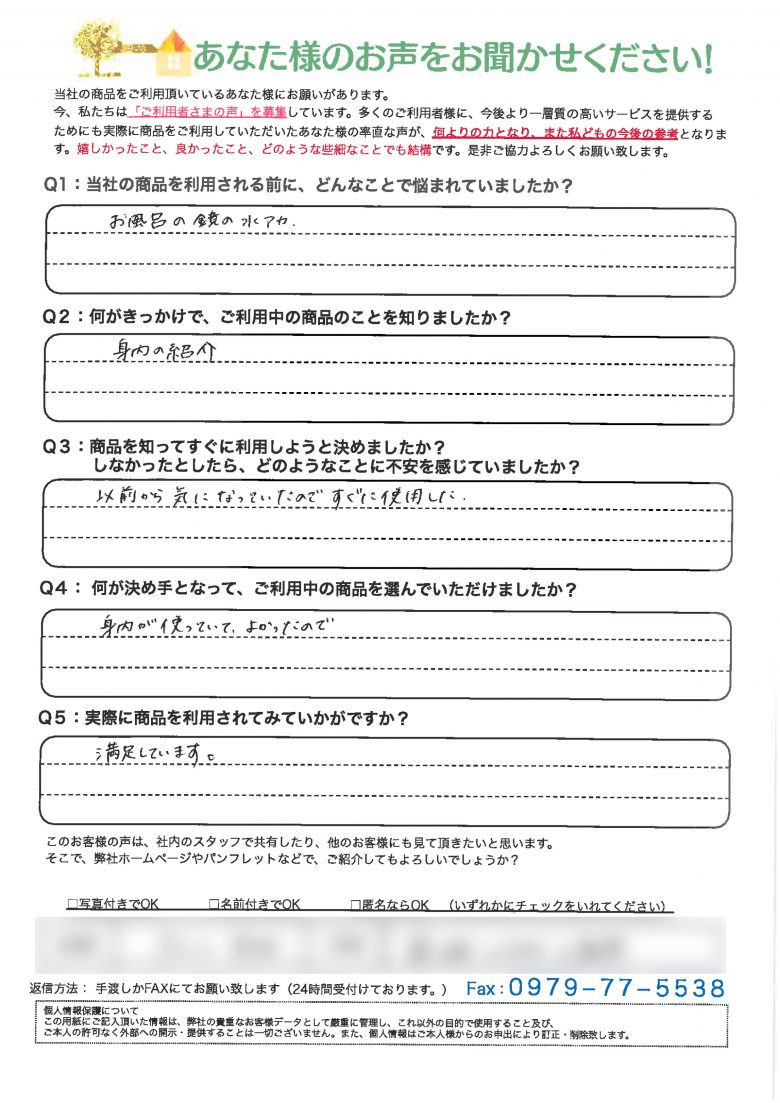 あなた様のお声をお聞かせください!
当社の商品をご利用頂いているあなた様にお願いがあります。
今、私たちは「ご利用者さまの声」を募集しています。多くのご利用者様に、今後より一層質の高いサービスを提供する
ためにも実際に商品をご利用していただいたあなた様の率直な声が、何よりの力となり、また私どもの今後の参考となりま
す。嬉しかったこと、良かったこと、どのような些細なことでも結構です。是非ご協力よろしくお願い致します。
Q1：当社の商品を利用される前に、どんなことで悩まれていましたか？
お風呂の鏡の水アカ.
Q2：何がきっかけで、ご利用中の商品のことを知りましたか？
身内の紹介
Q3：商品を知ってすぐに利用しようと決めましたか？
しなかったとしたら、どのようなことに不安を感じていましたか？
以前から気になっていたのですぐに使用した.
Q4： 何が決め手となって、ご利用中の商品を選んでいただけましたか？
身内が使っていて、よかったので
Q5：実際に商品を利用されてみていかがですか？
満足しています。
このお客様の声は、社内のスタッフで共有したり、他のお客様にも見て頂きたいと思います。
そこで、弊社ホームページやパンフレットなどで、ご紹介してもよろしいでしょうか？
□写真付きでOK □名前付きでOK □匿名ならOK （いずれかにチェックをいれてください）
返信方法： 手渡しかFAXにてお願い致します（24時間受付けております。） Fax：0979-77-5538
個人情報保護について
この用紙にご記入頂いた情報は、弊社の貴重なお客様データとして厳重に管理し、これ以外の目的で使用すること及び、
ご本人の許可なく外部への開示・提供することは一切ございません。また、個人情報はご本人様からのお申出により訂正・削除致します。